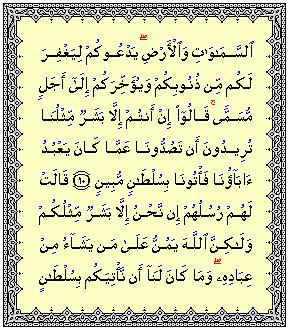 ٱلسَّمَٰوَٰتِ وَٱلْأَرْضِ ۖ يَدْعُوكُمْ لِيَغْفِرَ
لَكُم مِّن ذُنُوبِكُمْ وَيُؤَخِّرَكُمْ إِلَىٰٓ أَجَلٍ
مُّسَمًّى ۚ قَالُوٓا۟ إِنْ أَنتُمْ إِلَّا بَشَرٌ مِّثْلُنَا
تُرِيدُونَ أَن تَصُدُّونَا عَمَّا كَانَ يَعْبُدُ
ءَابَآؤُنَا فَأْتُونَا بِسُلْطَٰنٍ مُّبِينٍ ﴿١٠﴾ قَالَتْ
لَهُمْ رُسُلُهُمْ إِن نَّحْنُ إِلَّا بَشَرٌ مِّثْلُكُمْ
وَلَٰكِنَّ ٱللَّهَ يَمُنُّ عَلَىٰ مَن يَشَآءُ مِنْ
عِبَادِهِۦ ۖ وَمَا كَانَ لَنَآ أَن نَّأْتِيَكُم بِسُلْطَٰنٍ